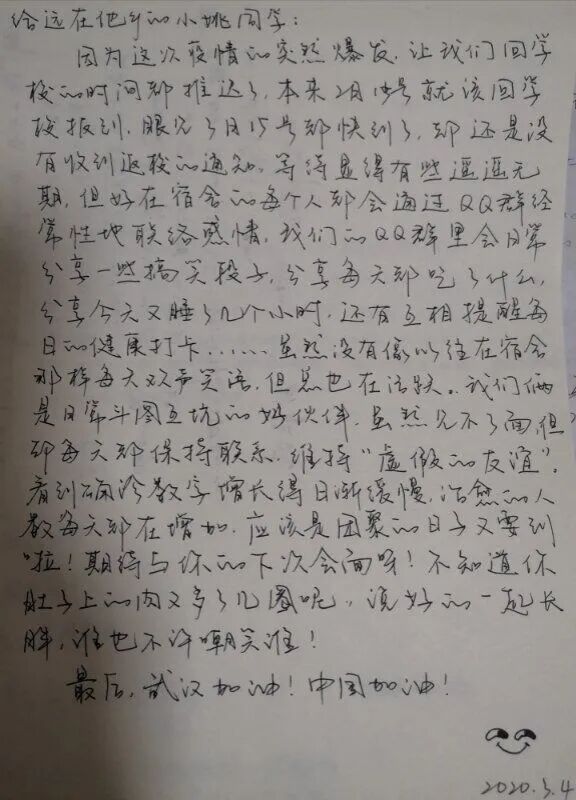 给远在他乡的小姚同学：
因为这次疫情的突然爆发，让我们回学
校的时间都推迟了，本来2月18号就该回学
校报到，眼见了月15号都快到了，却还是没
有收到返校的通知，等待显得有些遥遥无
期，但好在宿舍的每个人都会通过QQ群经
常性地联络感情，我们的QQ群里会日常
分享一些搞笑段子，分享每天都吃了什么，
分享今天又睡了几个小时，还有互相提醒每
日的健康打卡……虽然没有像以往在宿舍
那样每天欢声笑语，但总也在活跃。我们俩
是日常斗图互坑的好伙伴，虽然见不了面，但
却每天都保持联系，维持“虚假的友谊”。
看到确诊数字增长得日渐缓慢，治愈的人
数每天都在增加，应该是团聚的日子又要到
啦！期待与你的下次会面呀！不知道你
肚子上的肉又多了几圈呢，说好的一起长
胖，谁也不许嘲笑谁！
最后，武汉加油！中国加油！
2020.3.4